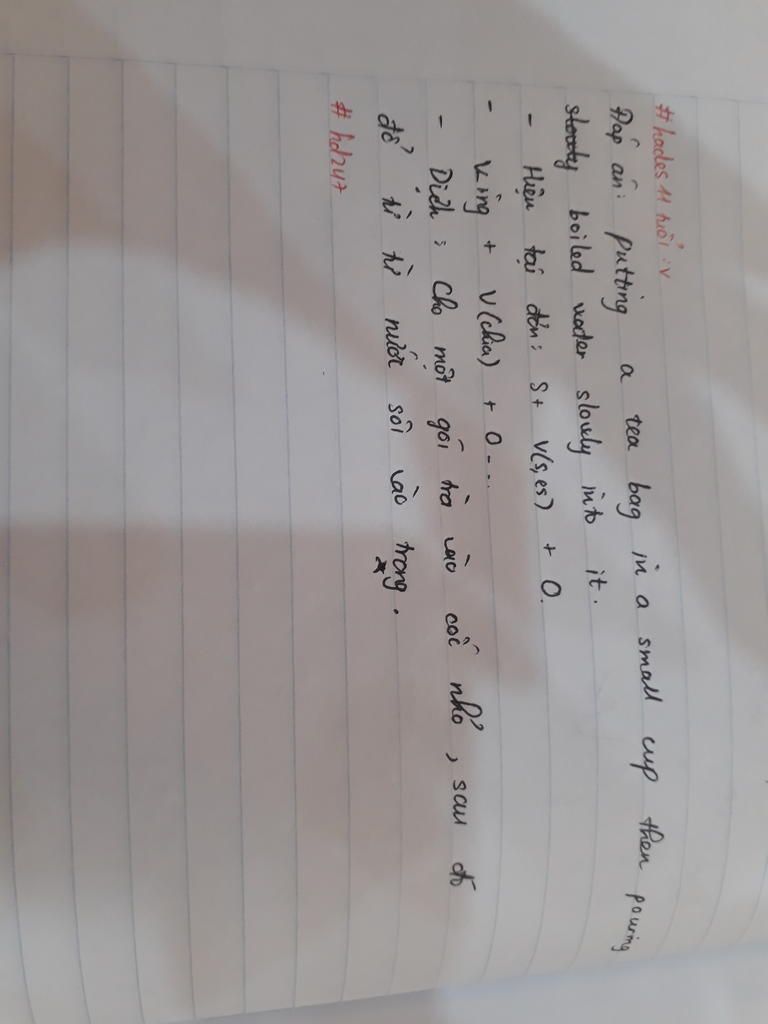 # hades 11 tuổi :v
Đáp án: Putting a tea bag in a small cup then pouring
slowly boiled water slowly into it.
- Hiện tại đơn: S+ V(s,es) + O.
- Ving + V(chia) + O...
- Dịch: Cho một gói trà vào cốc nhỏ, sau đó
đổ từ từ nước sôi vào trong.
# hd247